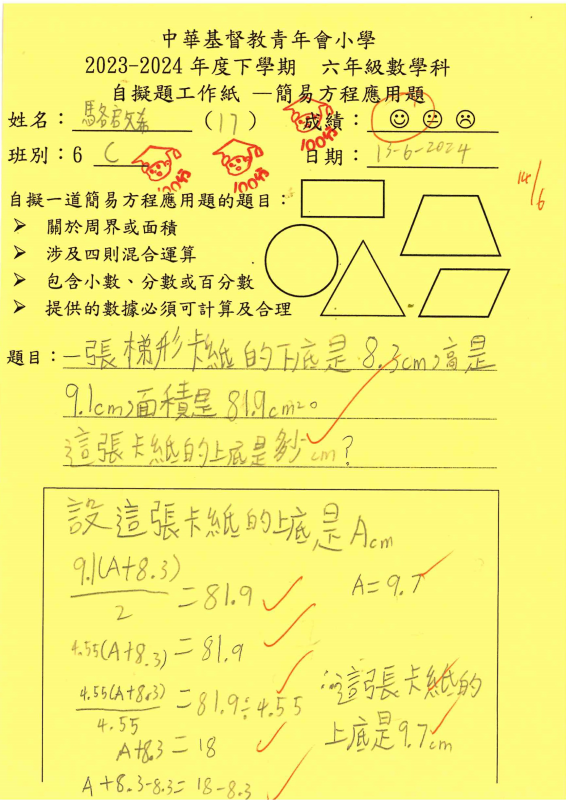 中華基督教青年會小學
2023-2024 年度下學期　六年級數學科
自擬題工作紙 —簡易方程應用題
姓名： （17） 成績： ☺ 😐 ☹
100分
班別：6 C 日期： 13-6-2024
100分 100分
14/6
自擬一道簡易方程應用題的題目：
➤ 關於周界或面積
➤ 涉及四則混合運算
➤ 包含小數、分數或百分數
➤ 提供的數據必須可計算及合理
題目：一張梯形卡紙的下底是8.3cm，高是
9.1cm，面積是81.9cm²。
這張卡紙的上底是多少cm？
設這張卡紙的上底是Acm
9.1(A+8.3)/2 = 81.9
4.55(A+8.3) = 81.9
4.55(A+8.3)/4.55 = 81.9÷4.55
A+8.3 = 18
A+8.3-8.3 = 18-8.3
A=9.7
∴這張卡紙的
上底是9.7cm